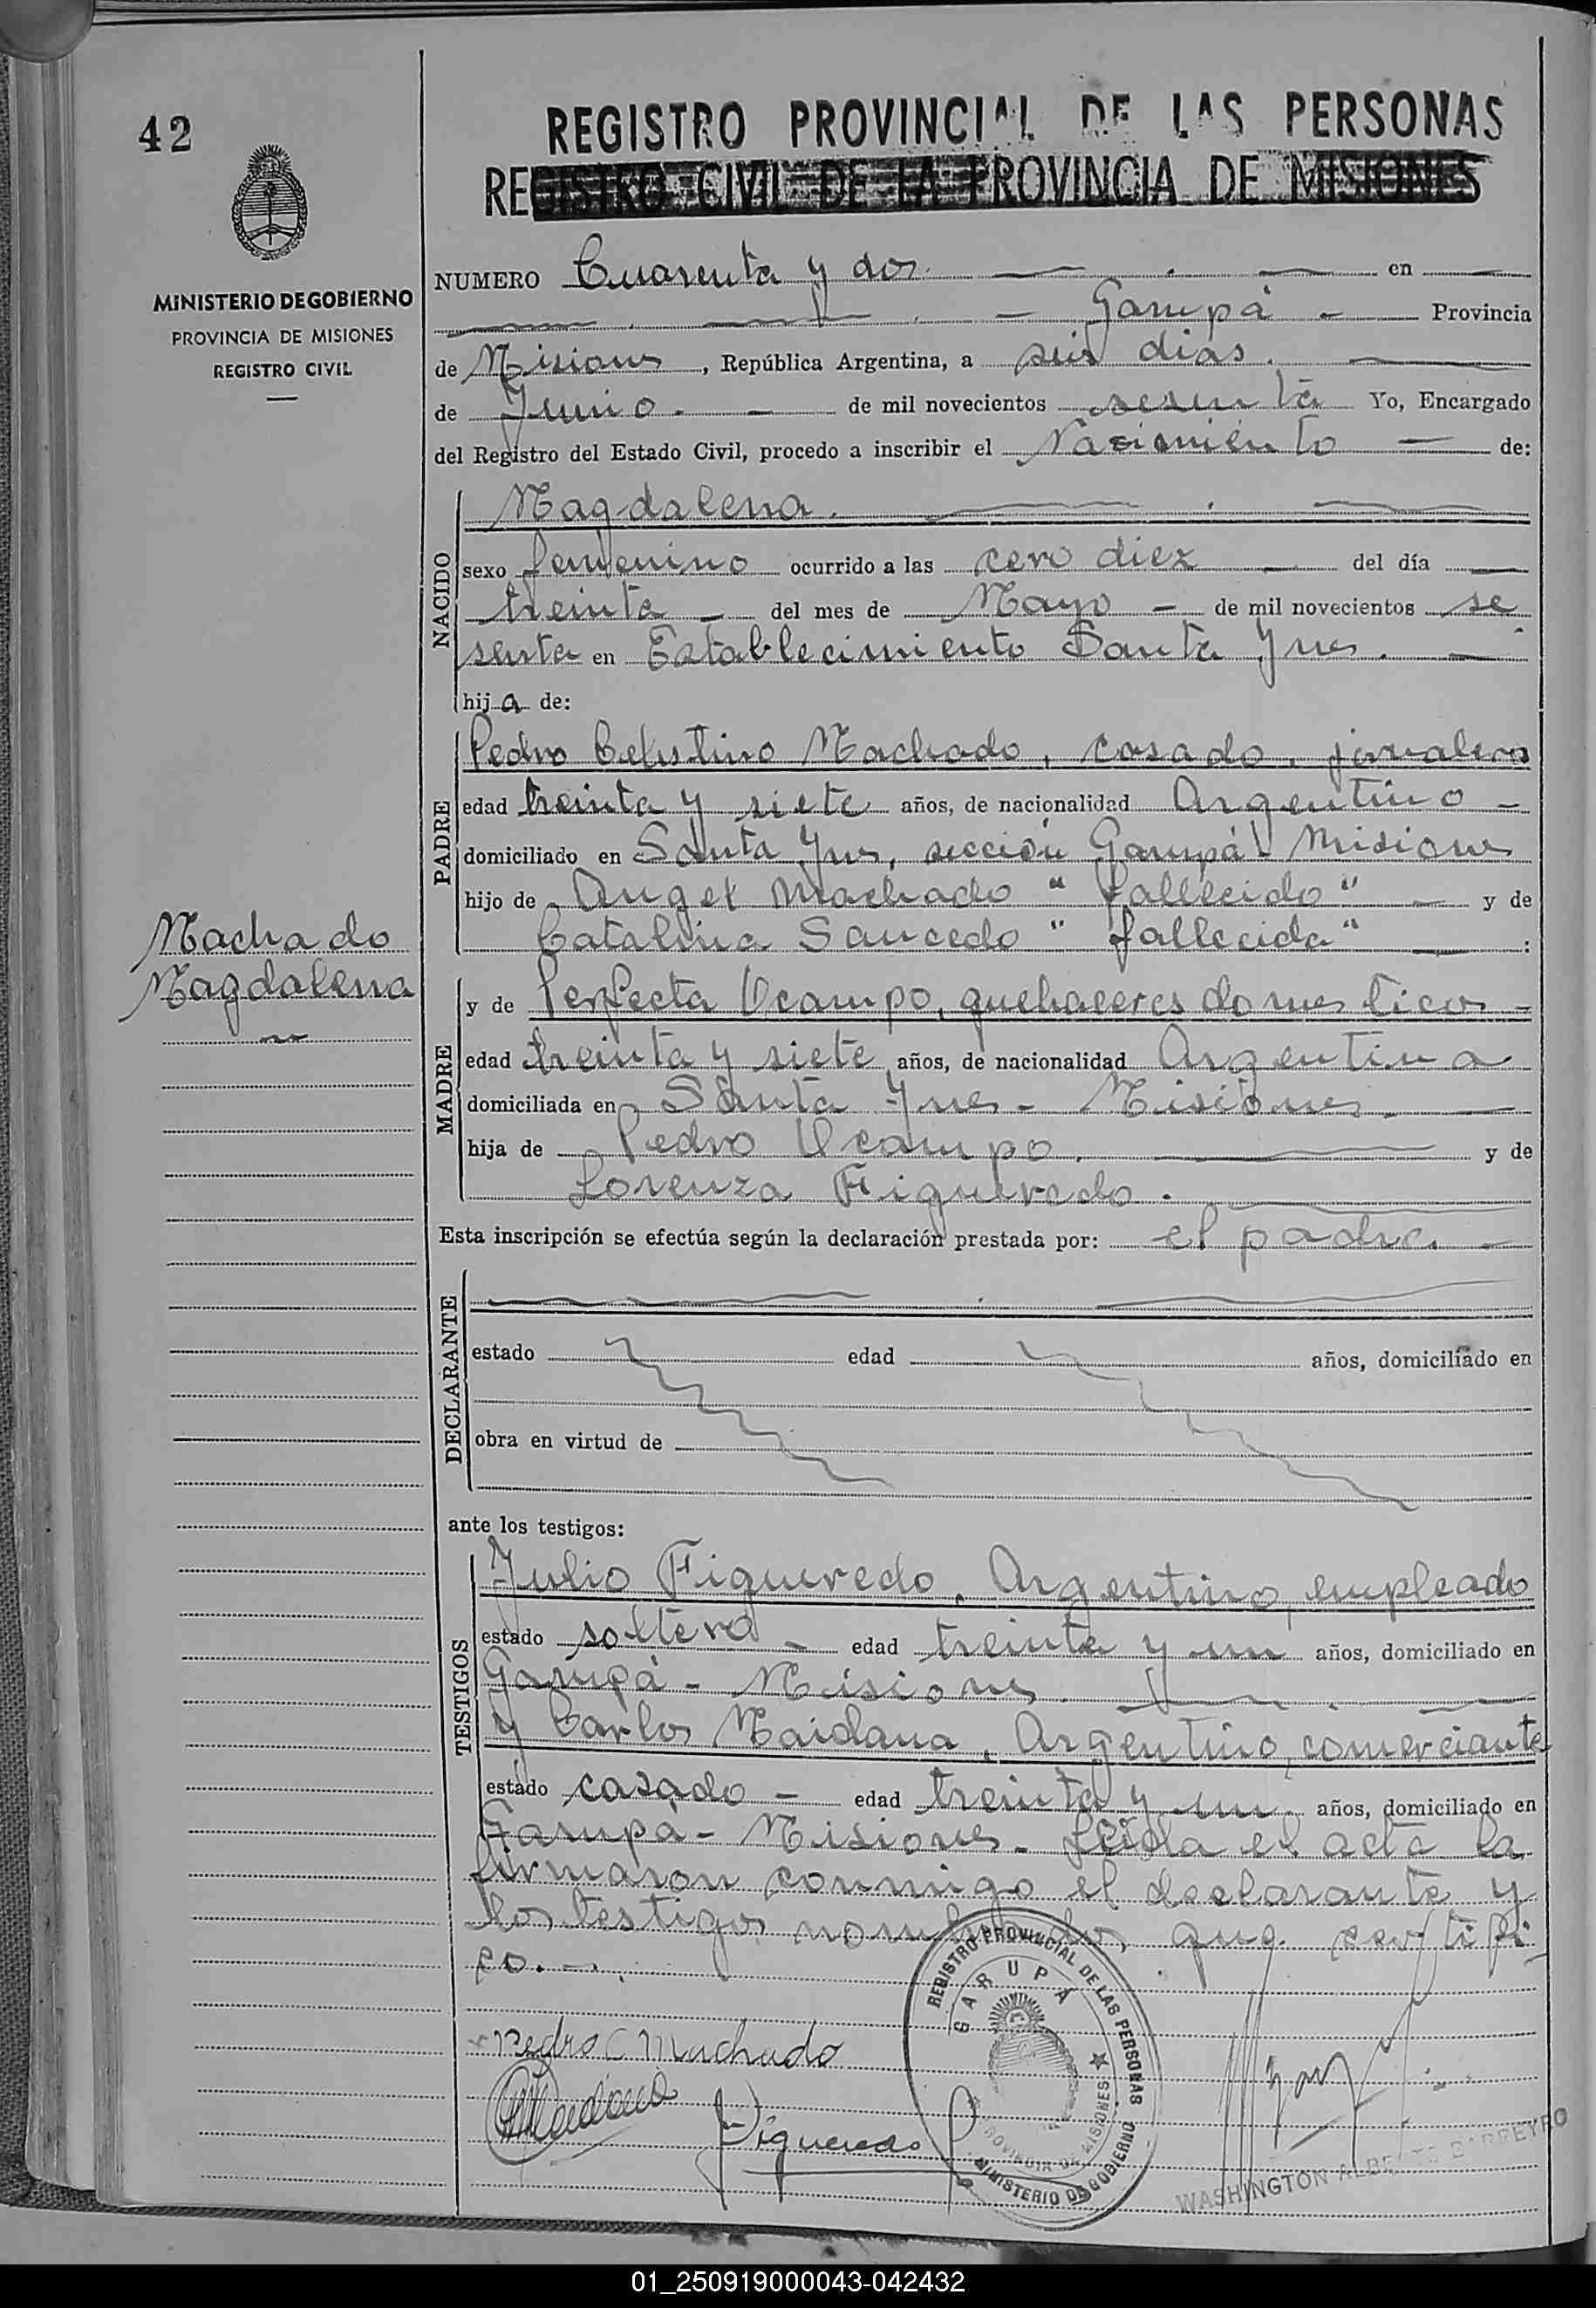 42
REGISTRO PROVINCIAL DE LAS PERSONAS
REGISTRO CIVIL DE LA PROVINCIA DE MISIONES
MINISTERIO DE GOBIERNO
PROVINCIA DE MISIONES
REGISTRO CIVIL
NUMERO Cuarenta y dos. en
Garupá Provincia
de Misiones, República Argentina, a seis días.
de Junio. de mil novecientos sesenta Yo, Encargado
del Registro del Estado Civil, procedo a inscribir el Nacimiento de:
NACIDO
Magdalena.
sexo femenino ocurrido a las cero diez del día
treinta del mes de Mayo de mil novecientos se
senta en Establecimiento Santa Ynes.
hija de:
PADRE
Pedro Celestino Machado, casado, jornalero
edad treinta y siete años, de nacionalidad Argentino
domiciliado en Santa Ynes, sección Garupá Misiones
hijo de Angel Machado "fallecido" y de
Catalina Saucedo "fallecida" :
Machado
Magdalena
MADRE
y de Perfecta Ocampo, quehaceres domesticos
edad treinta y siete años, de nacionalidad Argentina
domiciliada en Santa Ynes - Misiones.
hija de Pedro Ocampo. y de
Lorenza Figueredo.
Esta inscripción se efectúa según la declaración prestada por: el padre.
DECLARANTE
estado edad años, domiciliado en
obra en virtud de
ante los testigos:
TESTIGOS
Julio Figueredo, Argentino, empleado
estado soltero edad treinta y un años, domiciliado en
Garupá - Misiones.
y Carlos Maidana, Argentino, comerciante
estado casado edad treinta y un años, domiciliado en
Garupá - Misiones. Leida el acta la
firmaron conmigo el declarante y
los testigos nombrados, que certifi
co.
Pedro C Machado
CMaidana
JFigueredo
REGISTRO PROVINCIAL DE LAS PERSONAS
GARUPA
PROVINCIA DE MISIONES
MINISTERIO DE GOBIERNO
WASHINGTON ALBERTO BARREYRO
01_250919000043-042432